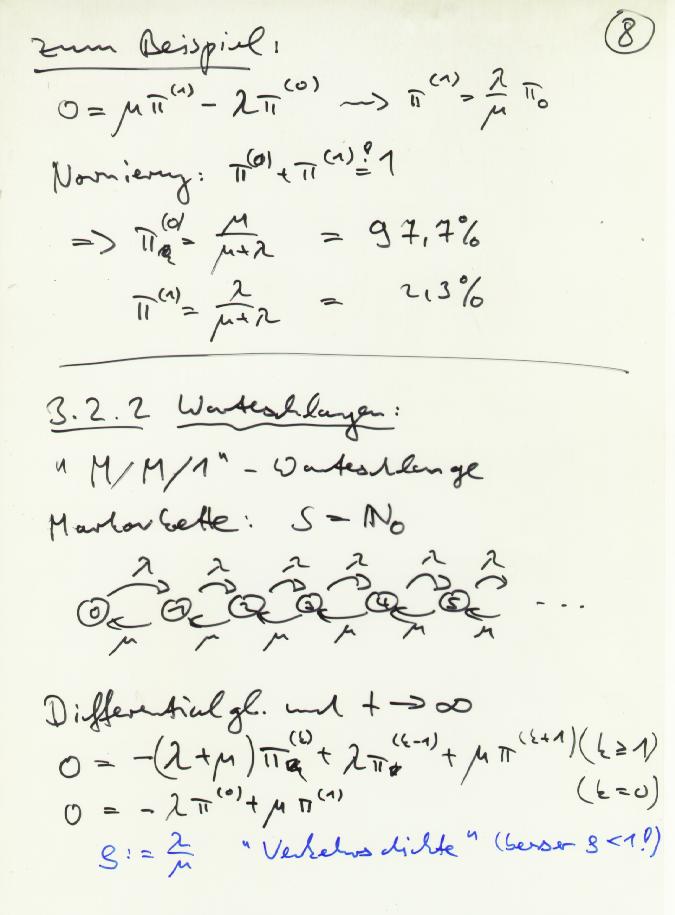 zum Beispiel: 8
0 = μπ⁽¹⁾ − λπ⁽⁰⁾ ⇝ π⁽¹⁾ = λ/μ π₀
Normierung: π⁽⁰⁾ + π⁽¹⁾ =! 1
=> π⁽⁰⁾ = μ/(μ+λ) = 97,7%
π⁽¹⁾ = λ/(μ+λ) = 2,3%
3.2.2 Warteschlangen:
"M/M/1" - Warteschlange
Markovkette: S = ℕ₀
λ λ λ λ λ λ
0 1 2 3 4 5 ...
μ μ μ μ μ μ
Differentialgl. und t → ∞
0 = −(λ+μ)π⁽ᵏ⁾ + λπ⁽ᵏ⁻¹⁾ + μπ⁽ᵏ⁺¹⁾ (k≥1)
0 = −λπ⁽⁰⁾ + μπ⁽¹⁾ (k=0)
ρ := λ/μ "Verkehrsdichte" (besser ρ<1!)